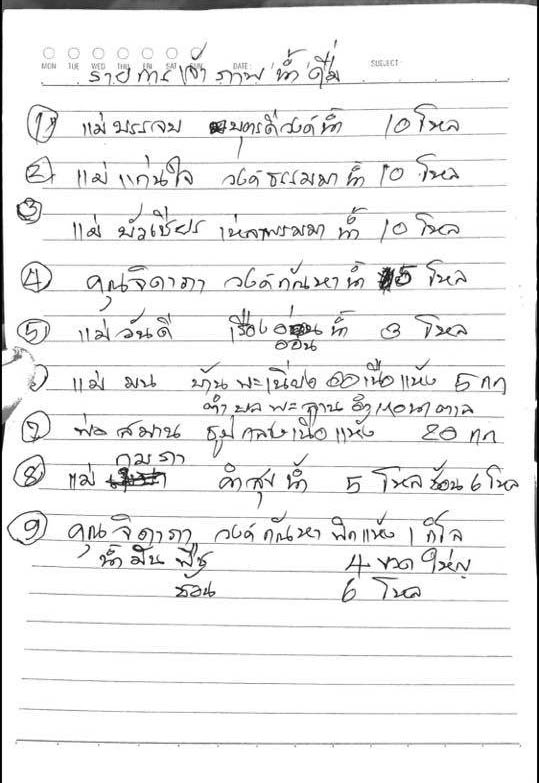 MON TUE WED THU FRI SAT SUN DATE: SUBJECT:
รายการเจ้าภาพน้ำดื่ม
1 แม่บรรจบ บุตรดีวงค์ น้ำ 10 โหล
2 แม่แก่นใจ วงค์ธรรมมา น้ำ 10 โหล
3
แม่ บัวเชียร เหลาพรมมา น้ำ 10 โหล
4 คุณจิดาภา วงค์กัณหา น้ำ 5 โหล
5 แม่วันดี เรืองอ่อน น้ำ 3 โหล
แม่ มน บ้านพะเนียง เนื้อแห้ง 5 กก
ตำบล พะลาน อำเภอนาตาล
7 พ่อ สมาน ธูปกลาง เนื้อแห้ง 20 กก
8 แม่ กุมภา คำสุข น้ำ 5 โหล ช้อน 6 โหล
9 คุณ จิดาภา วงค์กัณหา พริกแห้ง 1 กิโล
น้ำมันพืช 4 ขวดใหญ่
ช้อน 6 โหล